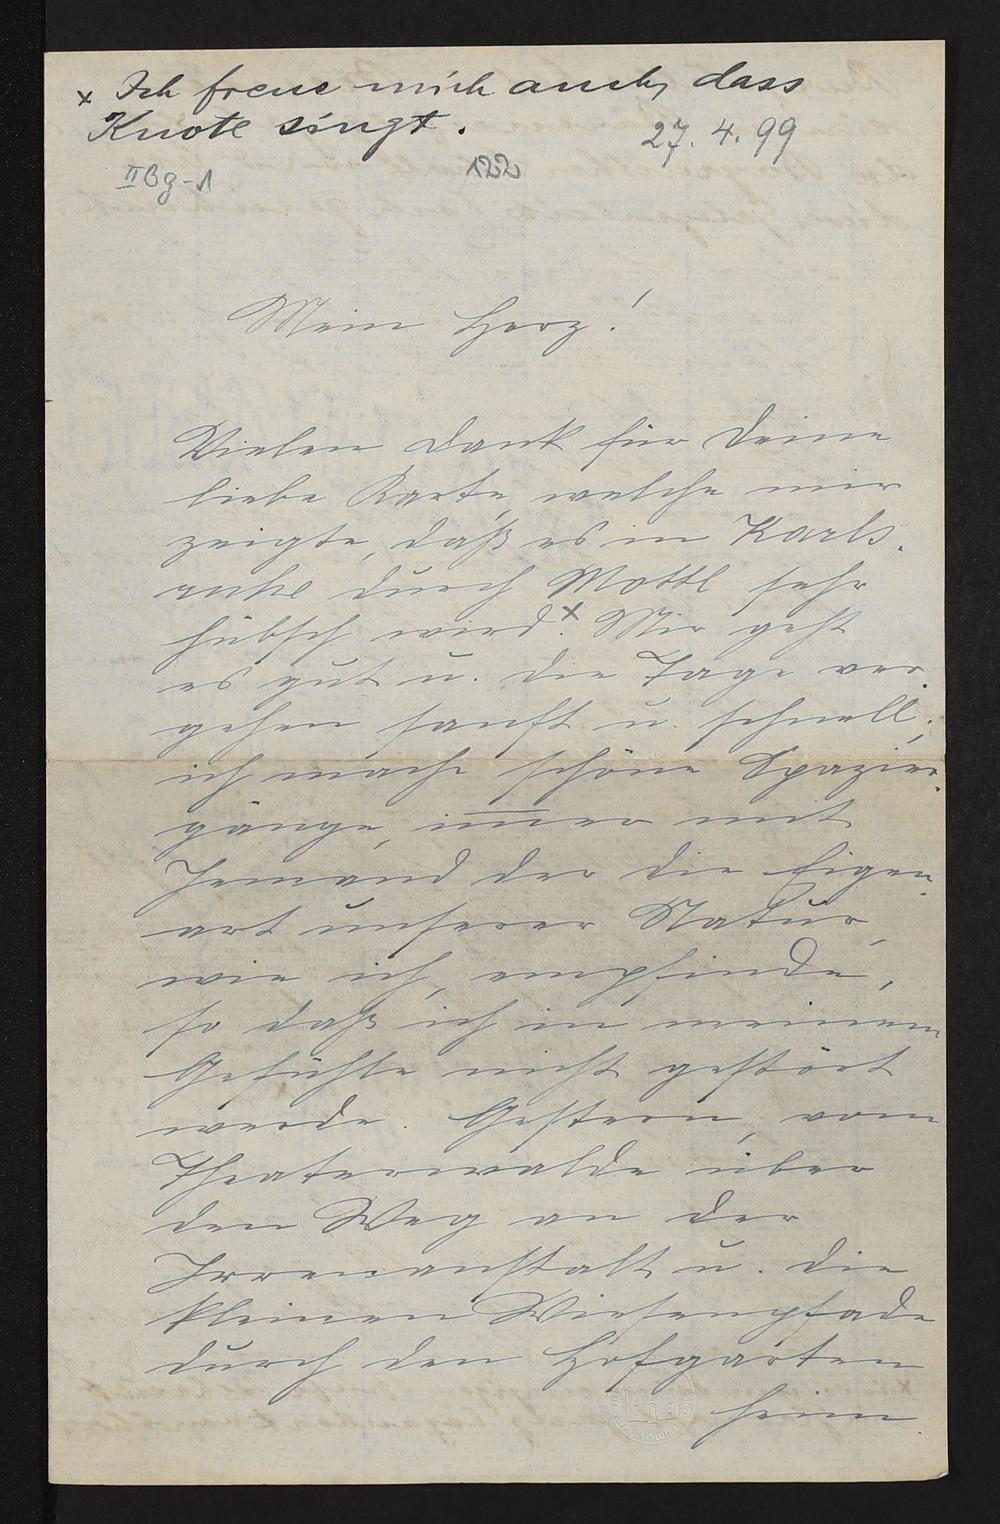 x Ich freue mich auch, dass
Knote singt.
27. 4. 99
II Bg-1
122
Mein Herz!
Vielen Dank für Deine
liebe Karte, welche mir
zeigte, daß es in Karls-
ruhe durch Mottl sehr
hübsch wird.x Mir geht
es gut u. die Tage ver-
gehen sanft u. schnell;
ich mache schöne Spazier-
gänge, im̅er mit
Jemand der die Eigen-
art unserer Natur,
wie ich, empfinde,
so daß ich in meinem
Gefühle nicht gestört
werde. Gestern, vom
Theaterwalde über
den Weg an der
Irrenanstalt u. die
kleinen Wiesenpfade
durch den Hofgarten
heim